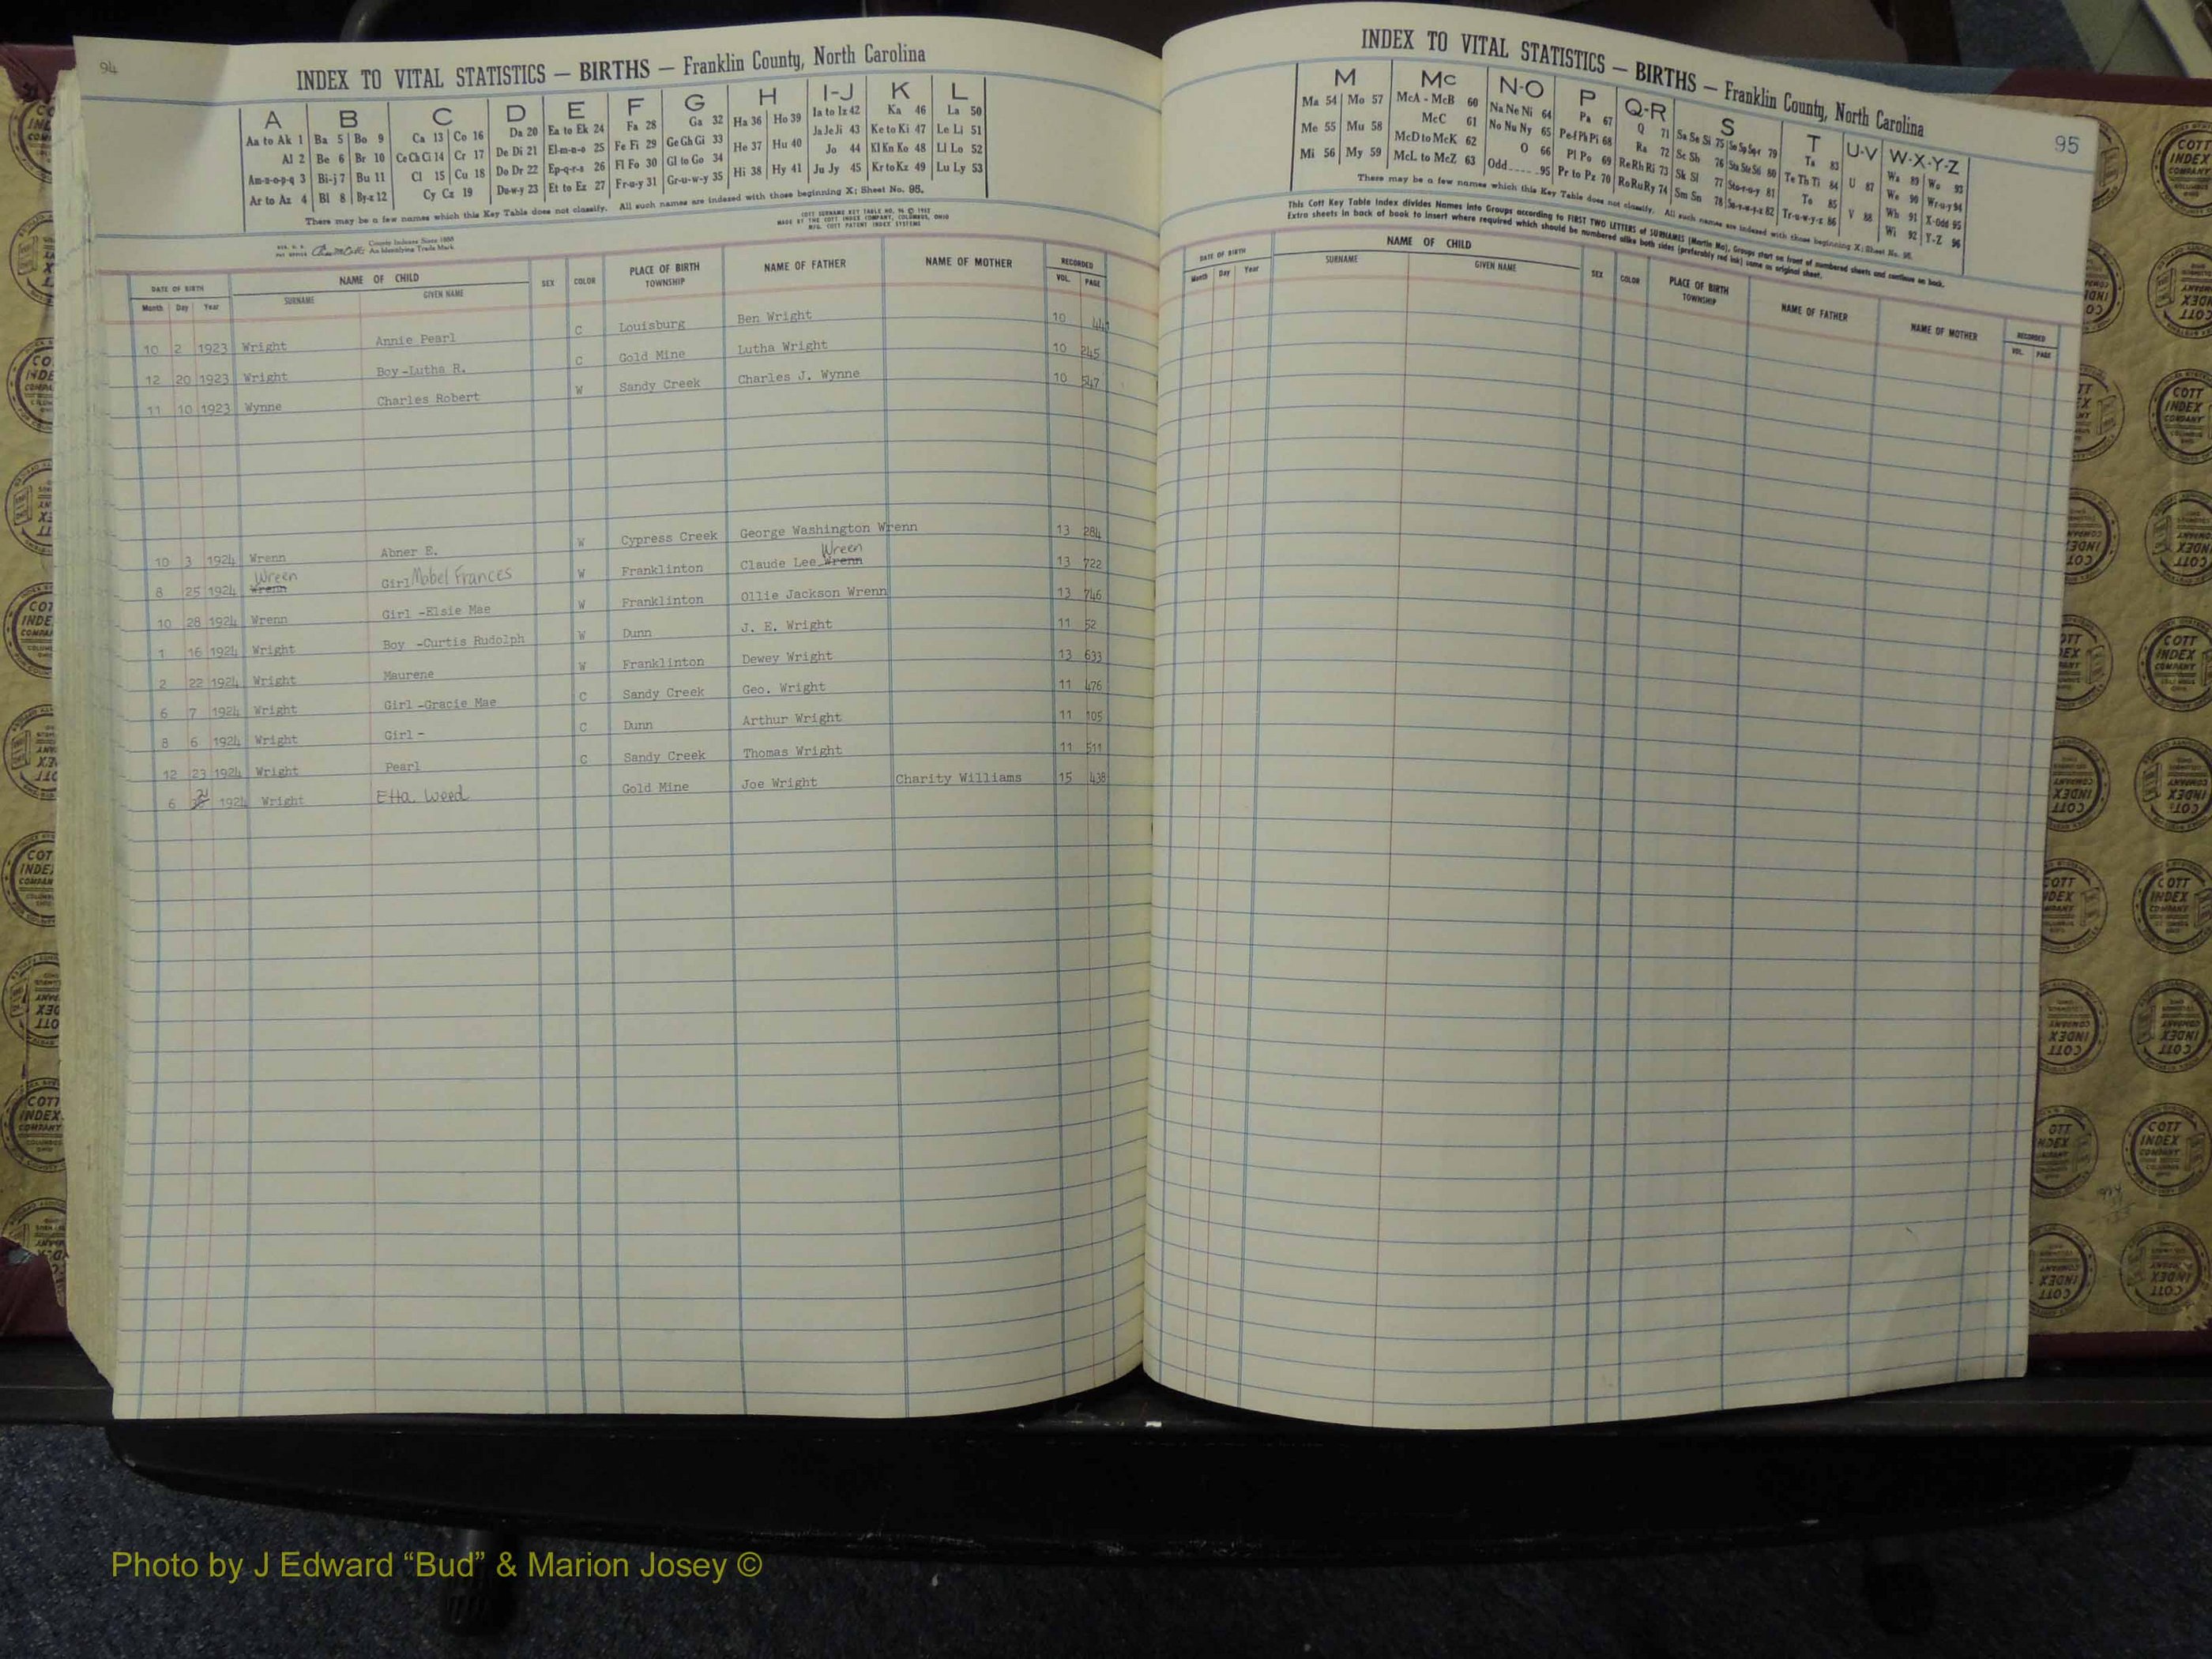 94
INDEX TO VITAL STATISTICS — BIRTHS — Franklin County, North Carolina
A B C D E F G H I-J K L
Aa to Ak 1 Ba 5 Bo 9 Ca 13 Co 16 Da 20 Ea to Ek 24 Fa 28 Ga 32 Ha 36 Ho 39 Ia to Iz 42 Ka 46 La 50
Al 2 Be 6 Br 10 Ce Ch Ci 14 Cr 17 De Di 21 El-m-n-o 25 Fe Fi 29 Ge Gh Gi 33 He 37 Hu 40 Ja Je Ji 43 Ke to Ki 47 Le Li 51
Am-n-o-p-q 3 Bi-j 7 Bu 11 Cl 15 Cu 18 Do Dr 22 Ep-q-r-s 26 Fl Fo 30 Gl to Go 34 Hi 38 Hy 41 Jo 44 Kl Kn Ko 48 Ll Lo 52
Ar to Az 4 Bl 8 By-z 12 Cy Cz 19 Du-w-y 23 Et to Ez 27 Fr-u-y 31 Gr-u-w-y 35 Ju Jy 45 Kr to Kz 49 Lu Ly 53
There may be a few names which this Key Table does not classify. All such names are indexed with those beginning X; Sheet No. 95.
COTT SURNAME KEY TABLE NO. 96 © 1952
MADE BY THE COTT INDEX COMPANY, COLUMBUS, OHIO
MFG. COTT PATENT INDEX SYSTEMS
County Indexes Since 1888
An Identifying Trade Mark
DATE OF BIRTH NAME OF CHILD SEX COLOR PLACE OF BIRTH TOWNSHIP NAME OF FATHER NAME OF MOTHER RECORDED
Month Day Year SURNAME GIVEN NAME VOL. PAGE
10 2 1923 Wright Annie Pearl C Louisburg Ben Wright 10
12 20 1923 Wright Boy-Lutha R. C Gold Mine Lutha Wright 10 245
11 10 1923 Wynne Charles Robert W Sandy Creek Charles J. Wynne 10 547
10 3 1924 Wrenn Abner E. W Cypress Creek George Washington Wrenn 13 284
8 25 1924 Wrenn Wreen Girl Mabel Frances W Franklinton Claude Lee Wrenn Wreen 13 722
10 28 1924 Wrenn Girl -Elsie Mae W Franklinton Ollie Jackson Wrenn 13 746
1 16 1924 Wright Boy -Curtis Rudolph W Dunn J. E. Wright 11 52
2 22 1924 Wright Maurene W Franklinton Dewey Wright 13 633
6 7 1924 Wright Girl -Gracie Mae C Sandy Creek Geo. Wright 11 476
8 6 1924 Wright Girl - C Dunn Arthur Wright 11 105
12 23 1924 Wright Pearl C Sandy Creek Thomas Wright 11 511
6 1924 Wright Etta Weed Gold Mine Joe Wright Charity Williams 15 438
INDEX TO VITAL STATISTICS — BIRTHS — Franklin County, North Carolina
95
M Mc N-O P Q-R S T U-V W-X-Y-Z
Ma 54 Mo 57 McA - McB 60 Na Ne Ni 64 Pa 67 Q 71 Sa Se Si 75 So Sp Sq-r 79 Ta 83 U 87 Wa 89 Wo 93
Me 55 Mu 58 McC 61 No Nu Ny 65 Pe-f Ph Pi 68 Ra 72 Sc Sh 76 Sta Ste Sti 80 Te Th Ti 84 V 88 We 90 Wr-u-y 94
Mi 56 My 59 McD to McK 62 O 66 Pl Po 69 Re Rh Ri 73 Sk Sl 77 Sto-r-u-y 81 To 85 Wh 91 X-Odd 95
McL to McZ 63 Odd 95 Pr to Pz 70 Ro Ru Ry 74 Sm Sn 78 Su-v-w-y-z 82 Tr-u-w-y-z 86 Wi 92 Y-Z 96
There may be a few names which this Key Table does not classify. All such names are indexed with those beginning X; Sheet No. 95.
This Cott Key Table Index divides Names into Groups according to FIRST TWO LETTERS of SURNAMES (Martin Ma), Groups start on front of numbered sheets and continue on back.
Extra sheets in back of book to insert where required which should be numbered alike both sides (preferably red ink) same as original sheet.
DATE OF BIRTH NAME OF CHILD SEX COLOR PLACE OF BIRTH TOWNSHIP NAME OF FATHER NAME OF MOTHER RECORDED
Month Day Year SURNAME GIVEN NAME VOL. PAGE
COTT INDEX COMPANY COLUMBUS OHIO
Photo by J Edward “Bud” & Marion Josey ©